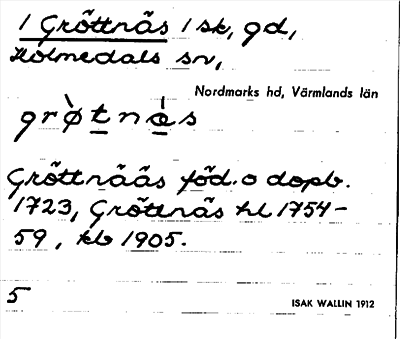 1 Gröttnäs 1 sk, gd,
Holmedals sn,
Nordmarks hd, Värmlands län
grø̀tnǽs
Gröttnääs föd. o dopb.
1723, Gröttnäs hl 1754-
59, kb 1905.
5
ISAK WALLIN 1912